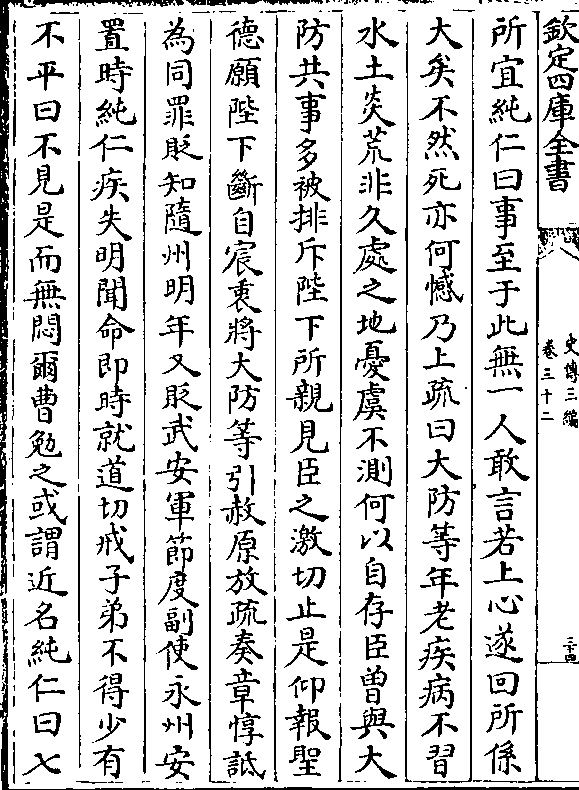 欽定四庫全書
史傳三編
卷三十二
三十四
所宜純仁曰事至于此無一人敢言若上心遂回所係
大矣不然死亦何憾乃上疏曰大防等年老疾病不習
水土炎荒非久處之地憂虞不測何以自存臣曾與大
防共事多被排斥陛下所親見臣之激切止是仰報聖
德願陛下斷自宸衷將大防等引赦原放疏奏章惇詆
為同罪貶知隨州明年又貶武安軍節度副使永州安
置時純仁疾失明聞命即時就道切戒子弟不得少有
不平曰不見是而無悶爾曹勉之或謂近名純仁曰七